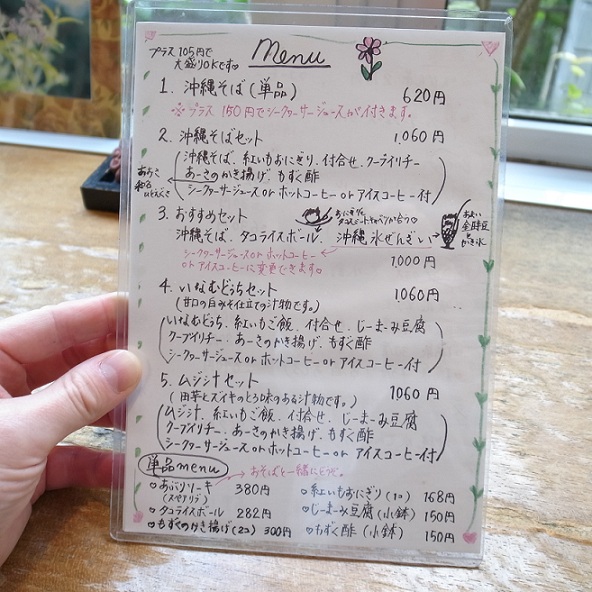 プラス105円で
大盛りOKです。
Menu
1. 沖縄そば(単品) 620円
※プラス150円でシークヮーサージュースが付きます。
2. 沖縄そばセット 1,060円
沖縄そば、紅いもおにぎり、付合せ、クーブイリチー
あーさのかき揚げ、もずく酢
シークヮーサージュース or ホットコーヒー or アイスコーヒー付
3. おすすめセット
沖縄そば、タコライスボール、沖縄氷ぜんざい
金時豆
かき氷
シークヮーサージュース or ホットコーヒー
or アイスコーヒーに変更できます。
1,000円
4. いなむどぅちセット 1,060円
(甘口の白みそ仕立ての汁物です。)
いなむどぅち、紅いもご飯、付合せ、じーまーみ豆腐
クーブイリチー、あーさのかき揚げ、もずく酢
シークヮーサージュース or ホットコーヒー or アイスコーヒー付
5. ムジ汁セット 1,060円
(田芋とズイキのとろ味のある汁物です。)
ムジ汁、紅いもご飯、付合せ、じーまーみ豆腐
クーブイリチー、あーさのかき揚げ、もずく酢
シークヮーサージュース or ホットコーヒー or アイスコーヒー付
単品menu おそばと一緒にどうぞ。
あぶりソーキ 380円
(スペアリブ)
タコライスボール 282円
もずくのかき揚げ(2コ) 300円
紅いもおにぎり(1コ) 168円
じーまーみ豆腐(小鉢) 150円
もずく酢(小鉢) 150円